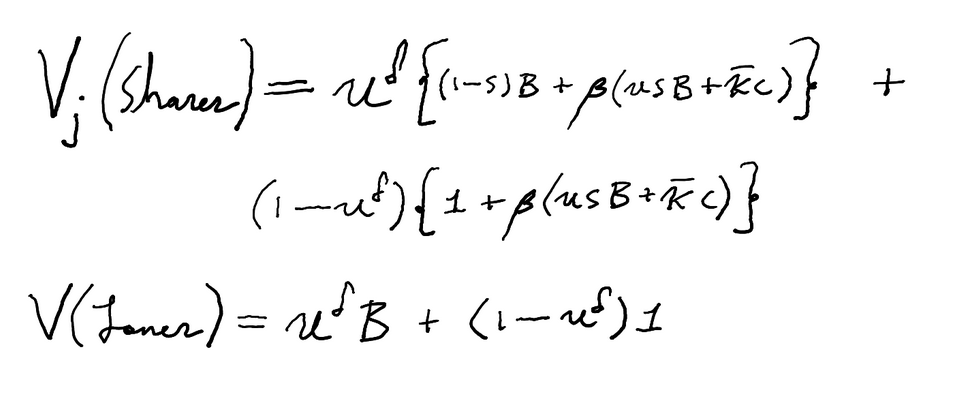 V_j(Sharer) = u^δ {(1-s)B + β(usB + k̄c)} +
(1-u^δ){1 + β(usB + k̄c)}
V(Loner) = u^δ B + (1-u^δ)1